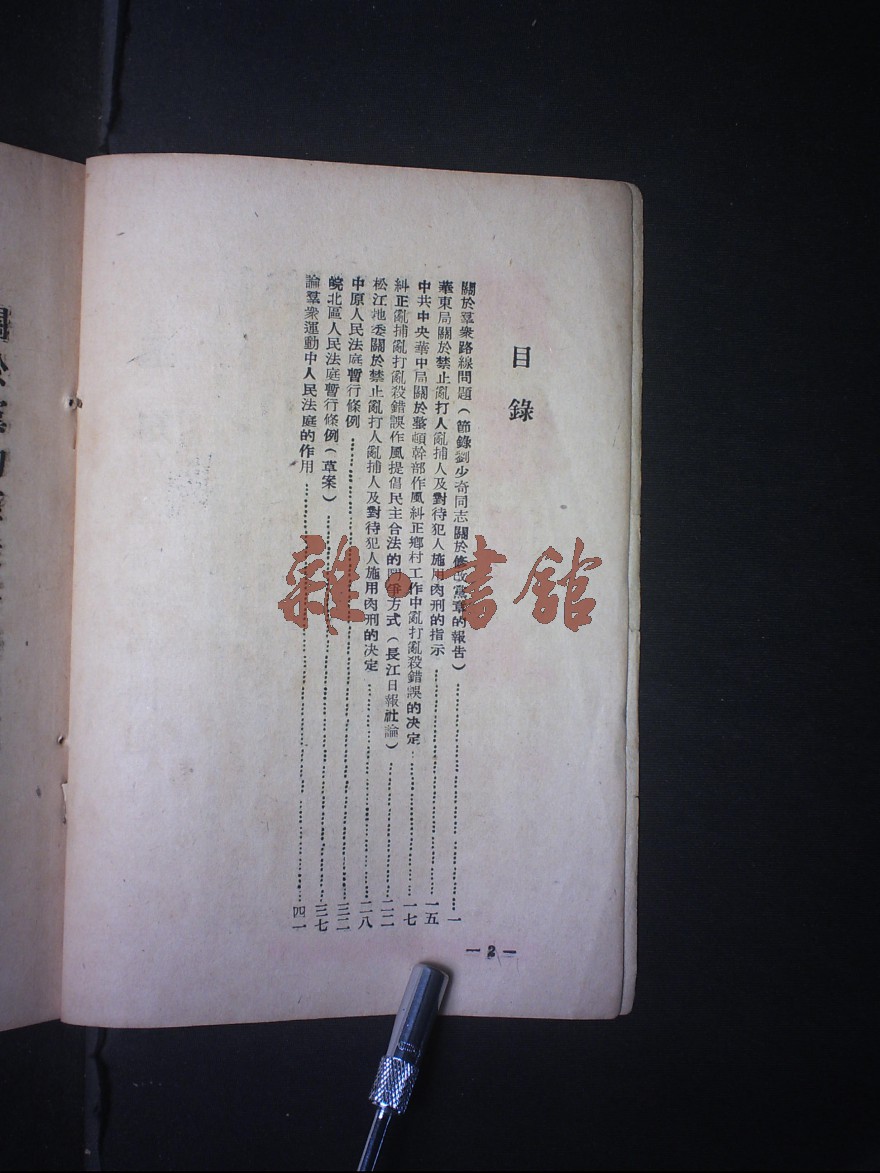 目錄
關於羣衆路線問題(節錄劉少奇同志關於修改黨章的報告)……一
華東局關於禁止亂打人亂捕人及對待犯人施用肉刑的指示……一五
中共中央華中局關於整頓幹部作風糾正鄉村工作中亂打亂殺錯誤的决定……一七
糾正亂捕亂打亂殺錯誤作風提倡民主合法的鬥爭方式(長江日報社論)……二二
松江地委關於禁止亂打人亂捕人及對待犯人施用肉刑的决定……二八
中原人民法庭暫行條例……三二
皖北區人民法庭暫行條例(草案)……三七
論羣衆運動中人民法庭的作用……四一
—2—
雜·書館